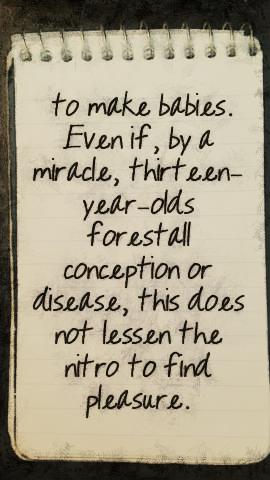 to make babies.
Even if, by a
miracle, thirteen-
year-olds
forestall
conception or
disease, this does
not lessen the
nitro to find
pleasure.